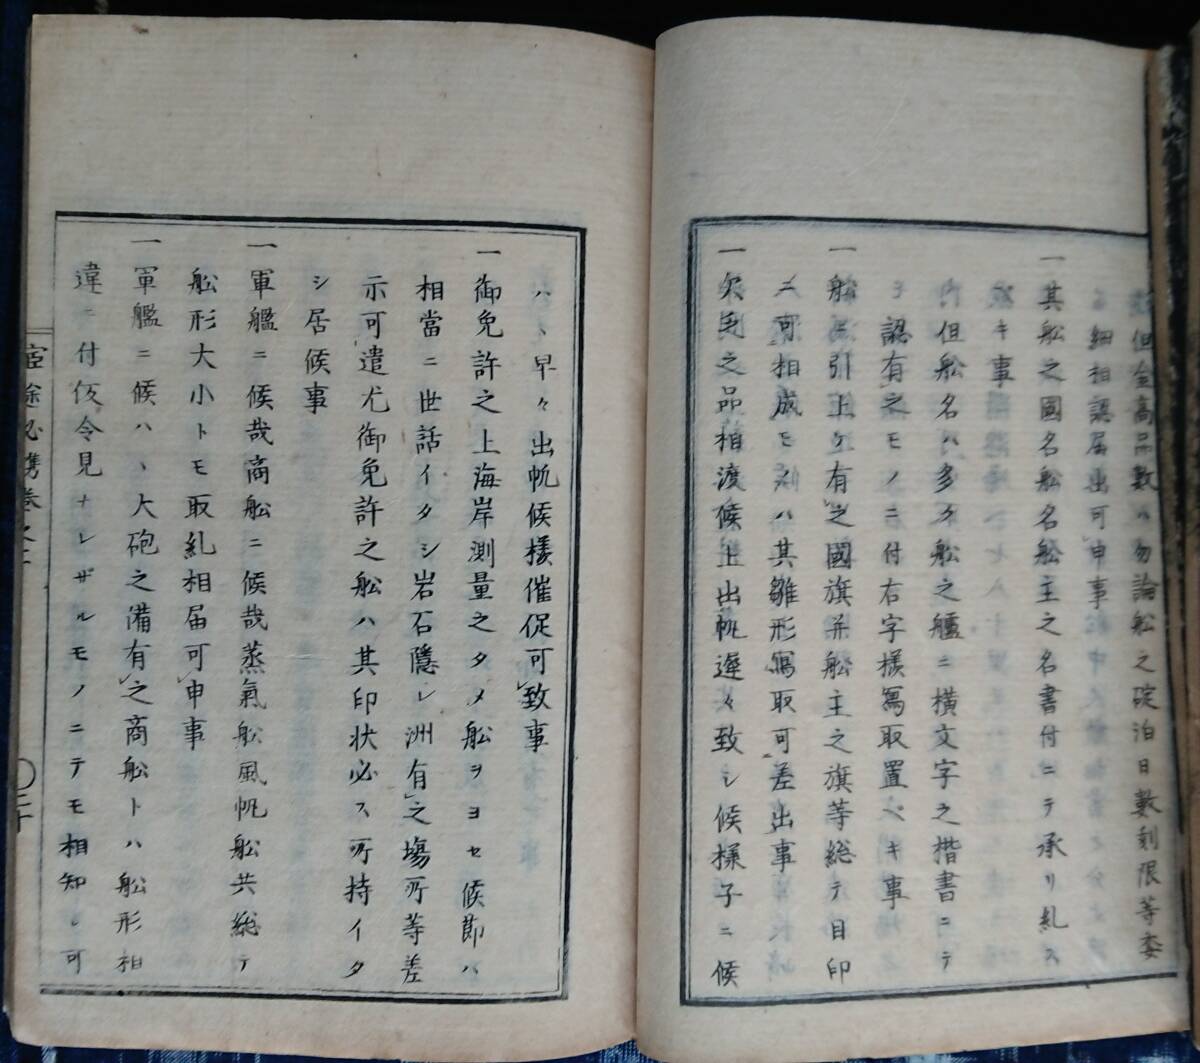 但金高品數ハ勿論舩之碇泊日數刻限等委
細相認届出可申事
一其舩之國名舩名舩主之名書付ニテ承リ糺ス
キ事
但舩名ハ多ク舩之艫ニ横文字之楷書ニテ
認有之モノニ付右字樣寫取置ベキ事
一舩ニ引上ケ有之國旗并舩主之旗等総テ目印
ニ可相成モノハ其雛形寫取可差出事
一欠乏之品相渡候上出帆遲々致シ候樣子ニ候
ハヽ早々出帆候樣催促可致事
一御免許之上海岸測量之タメ舩ヲヨセ候節ハ
相當ニ世話イタシ岩石隱レ洲有之塲所等差
示可遣尤御免許之舩ハ其印状必ス所持イタ
シ居候事
一軍艦ニ候哉商舩ニ候哉蒸氣舩風帆舩共総テ
舩形大小トモ取糺相届可申事
一軍艦ニ候ハヽ大砲之備有之商舩トハ舩形相
違ニ付仮令見ナレザルモノニテモ相知レ可
宦途必携巻之
〇二十